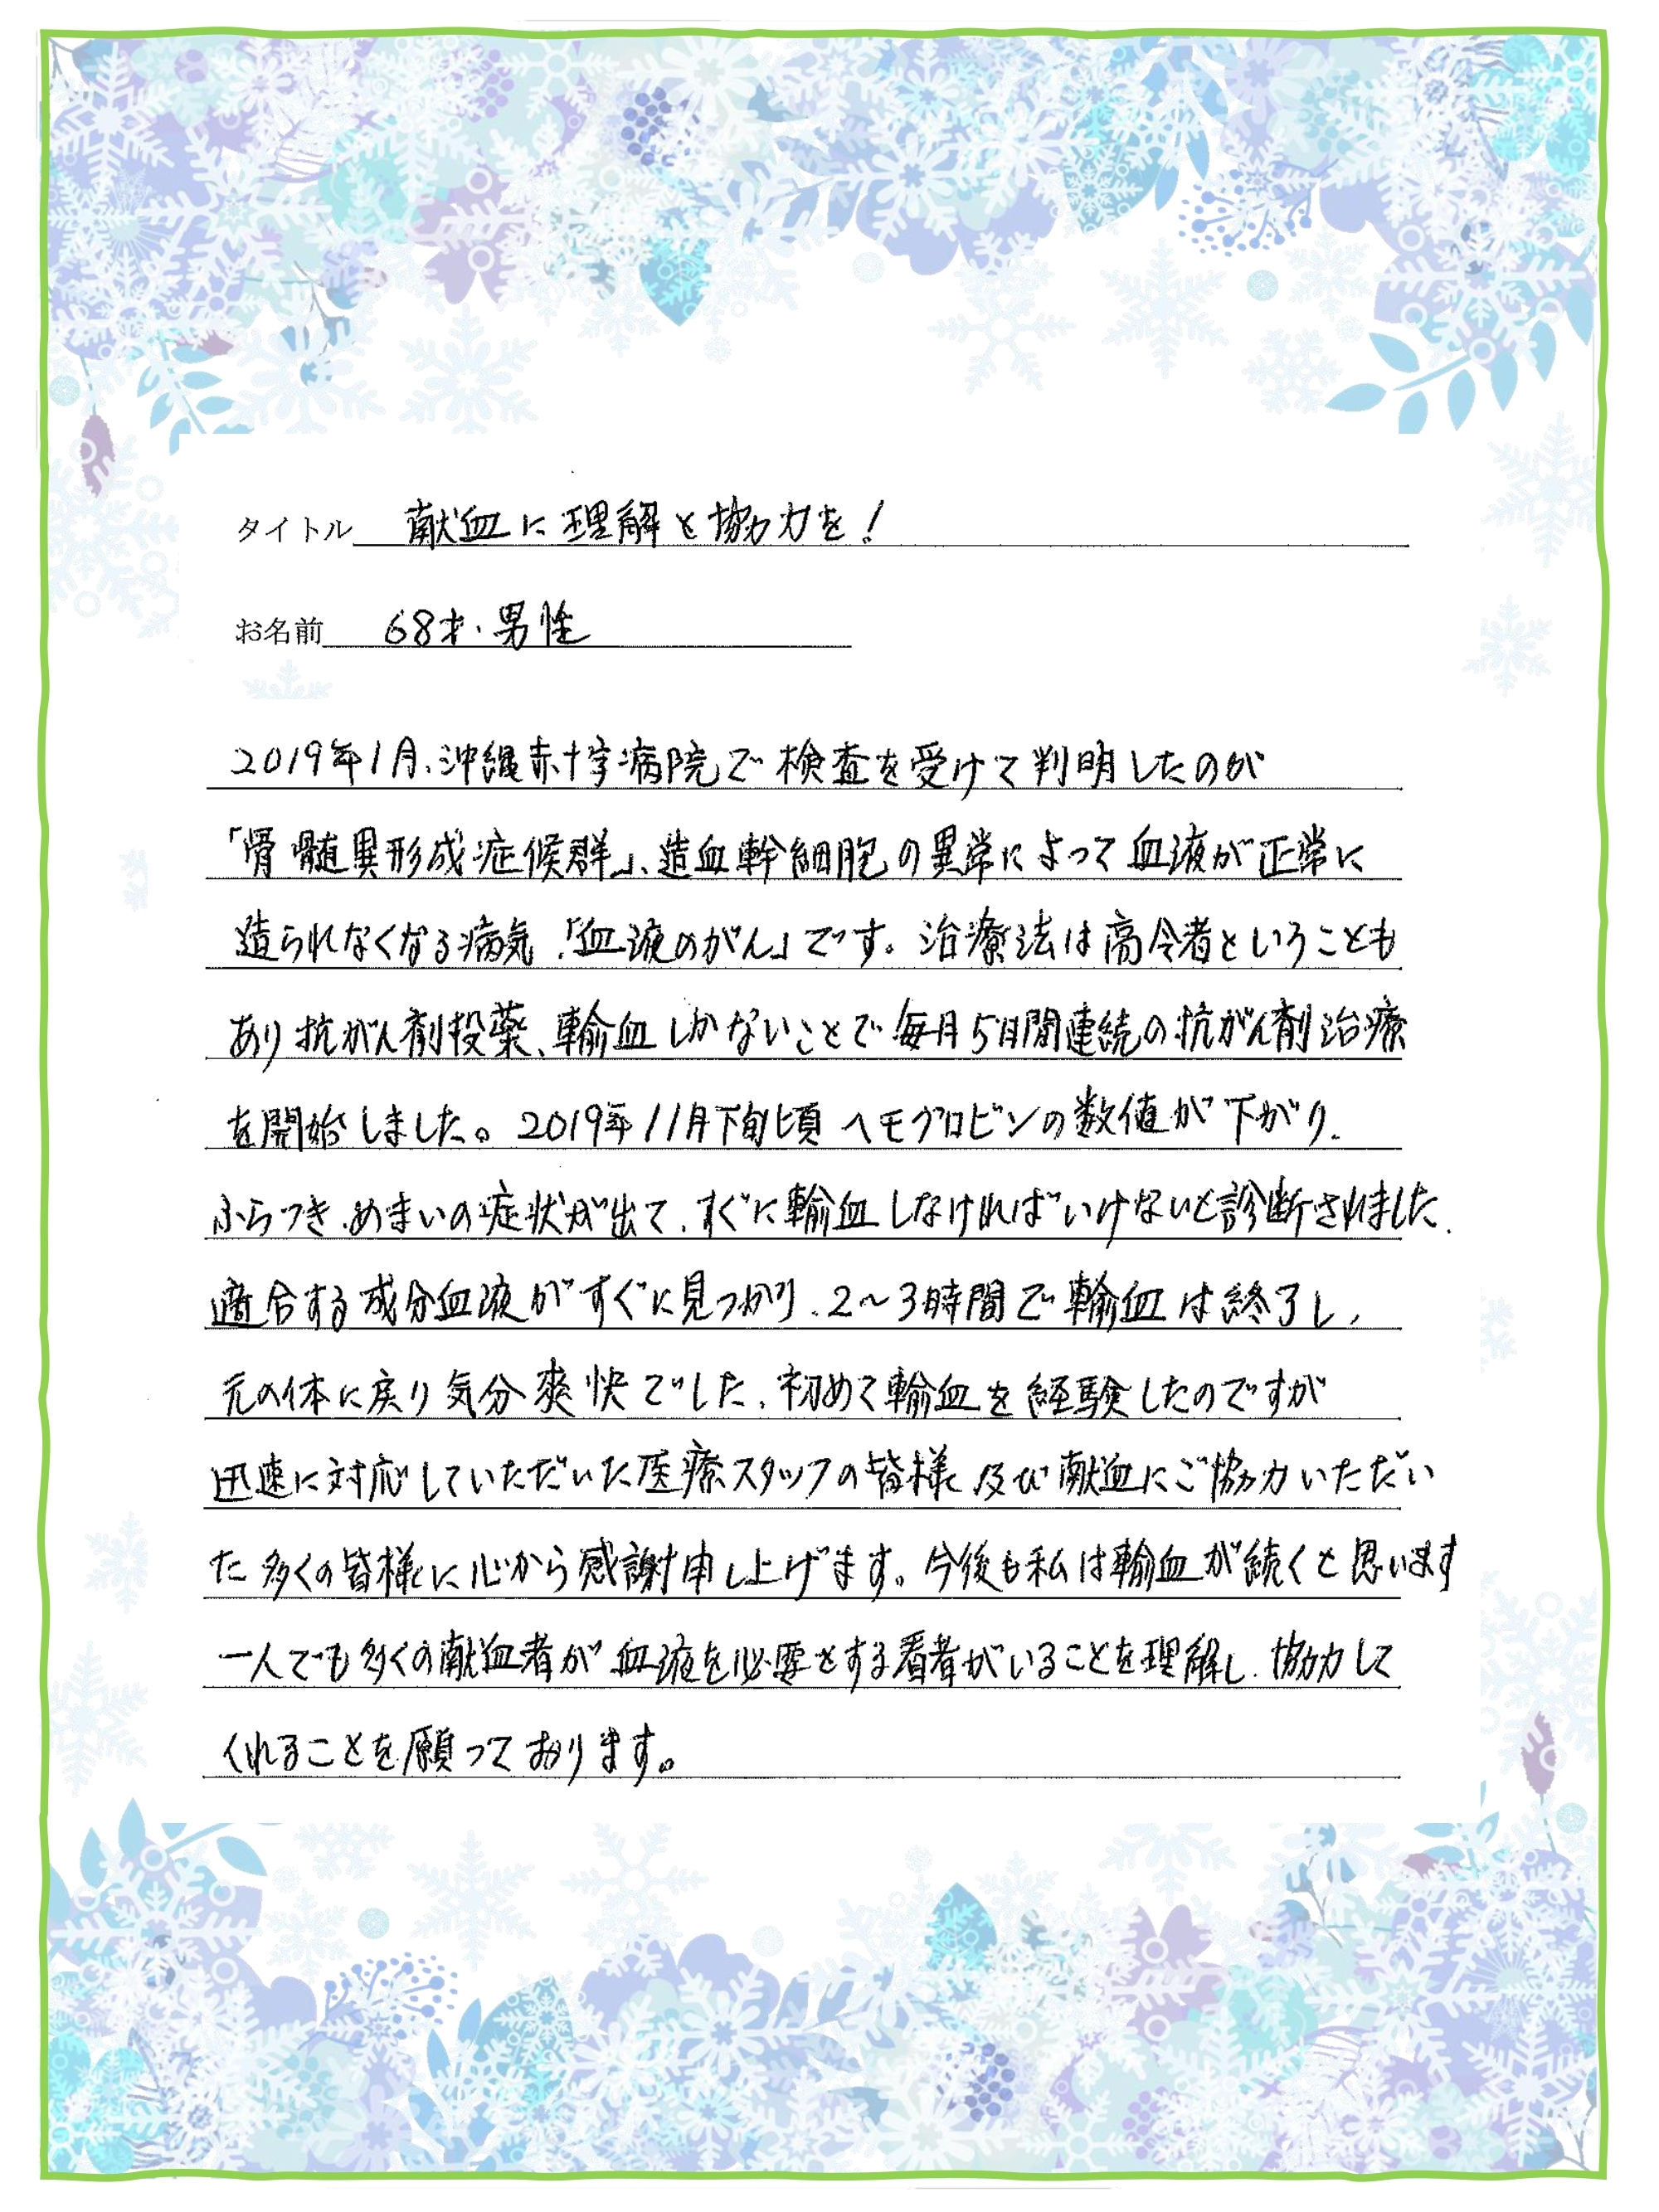 タイトル 献血に理解と協力を!
お名前 68才・男性
2019年1月、沖縄赤十字病院で検査を受けて判明したのが
「骨髄異形成症候群」、造血幹細胞の異常によって血液が正常に
造られなくなる病気、「血液のがん」です。治療法は高令者ということも
あり抗がん剤投薬、輸血しかないことで毎月5日間連続の抗がん剤治療
を開始しました。2019年11月下旬頃ヘモグロビンの数値が下がり、
ふらつき、めまいの症状が出て、すぐに輸血しなければいけないと診断されました、
適合する成分血液がすぐに見つかり、2〜3時間で輸血は終了し、
元の体に戻り気分爽快でした、初めて輸血を経験したのですが
迅速に対応していただいた医療スタッフの皆様及び献血にご協力いただい
た多くの皆様に心から感謝申し上げます。今後も私は輸血が続くと思います
一人でも多くの献血者が血液を必要とする看者がいることを理解し、協力して
くれることを願っております。